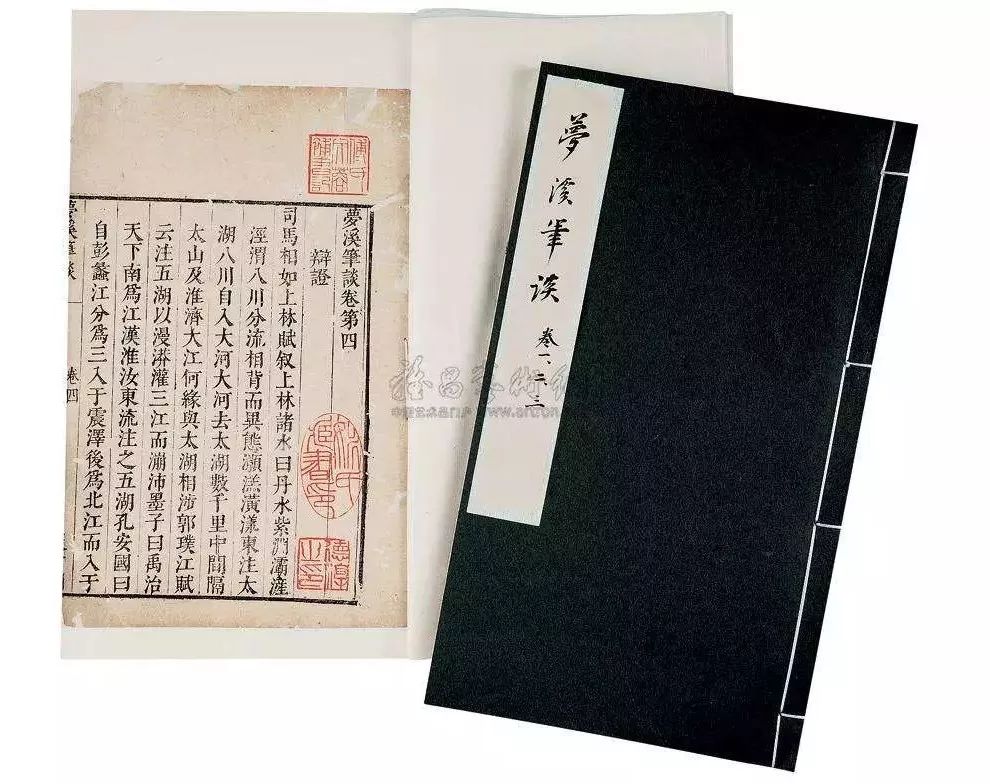 夢溪筆談卷第四
辯證
司馬相如上林賦叙上林諸水曰丹水紫淵灞滻
涇渭八川分流相背而異態灝溔潢漾東注太
湖八川自入大河大河去太湖數千里中間隔
太山及淮濟大江何緣與太湖相涉郭璞江賦
云注五湖以漫漭灌三江而漰沛墨子曰禹治
天下南爲江漢淮汝東流注之五湖孔安國曰
自彭蠡江分爲三入于震澤後爲北江而入于
夢溪筆談
卷四
夢溪筆談 卷一、二、三